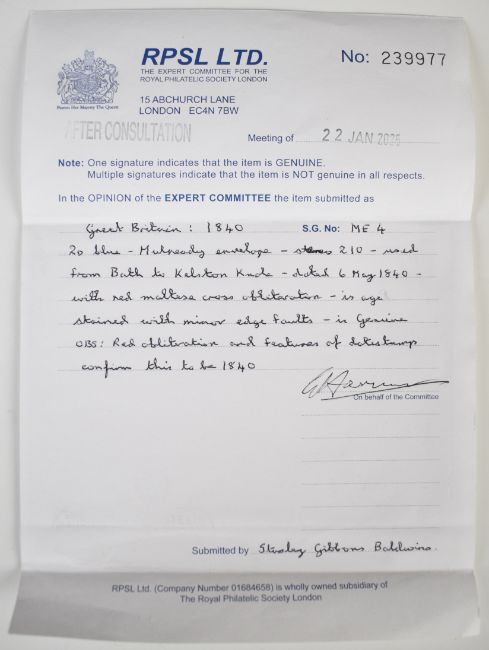 RPSL LTD.
THE EXPERT COMMITTEE FOR THE
ROYAL PHILATELIC SOCIETY LONDON
15 ABCHURCH LANE
LONDON EC4N 7BW
No: 239977
Patron Her Majesty The Queen
AFTER CONSULTATION
Meeting of 22 JAN 2025
Note: One signature indicates that the item is GENUINE.
Multiple signatures indicate that the item is NOT genuine in all respects.
In the OPINION of the EXPERT COMMITTEE the item submitted as
Great Britain: 1840 S.G. No: ME 4
2d blue - Mulready envelope - stereo 210 - used
from Bath to Kelston - dated 6 May 1840 -
with red maltese cross obliteration - is age
stained with minor edge faults - is Genuine
OBS: Red obliteration and features of datestamp
confirm this to be 1840
On behalf of the Committee
Submitted by Stanley Gibbons Baldwins.
RPSL Ltd. (Company Number 01684658) is wholly owned subsidiary of
The Royal Philatelic Society London